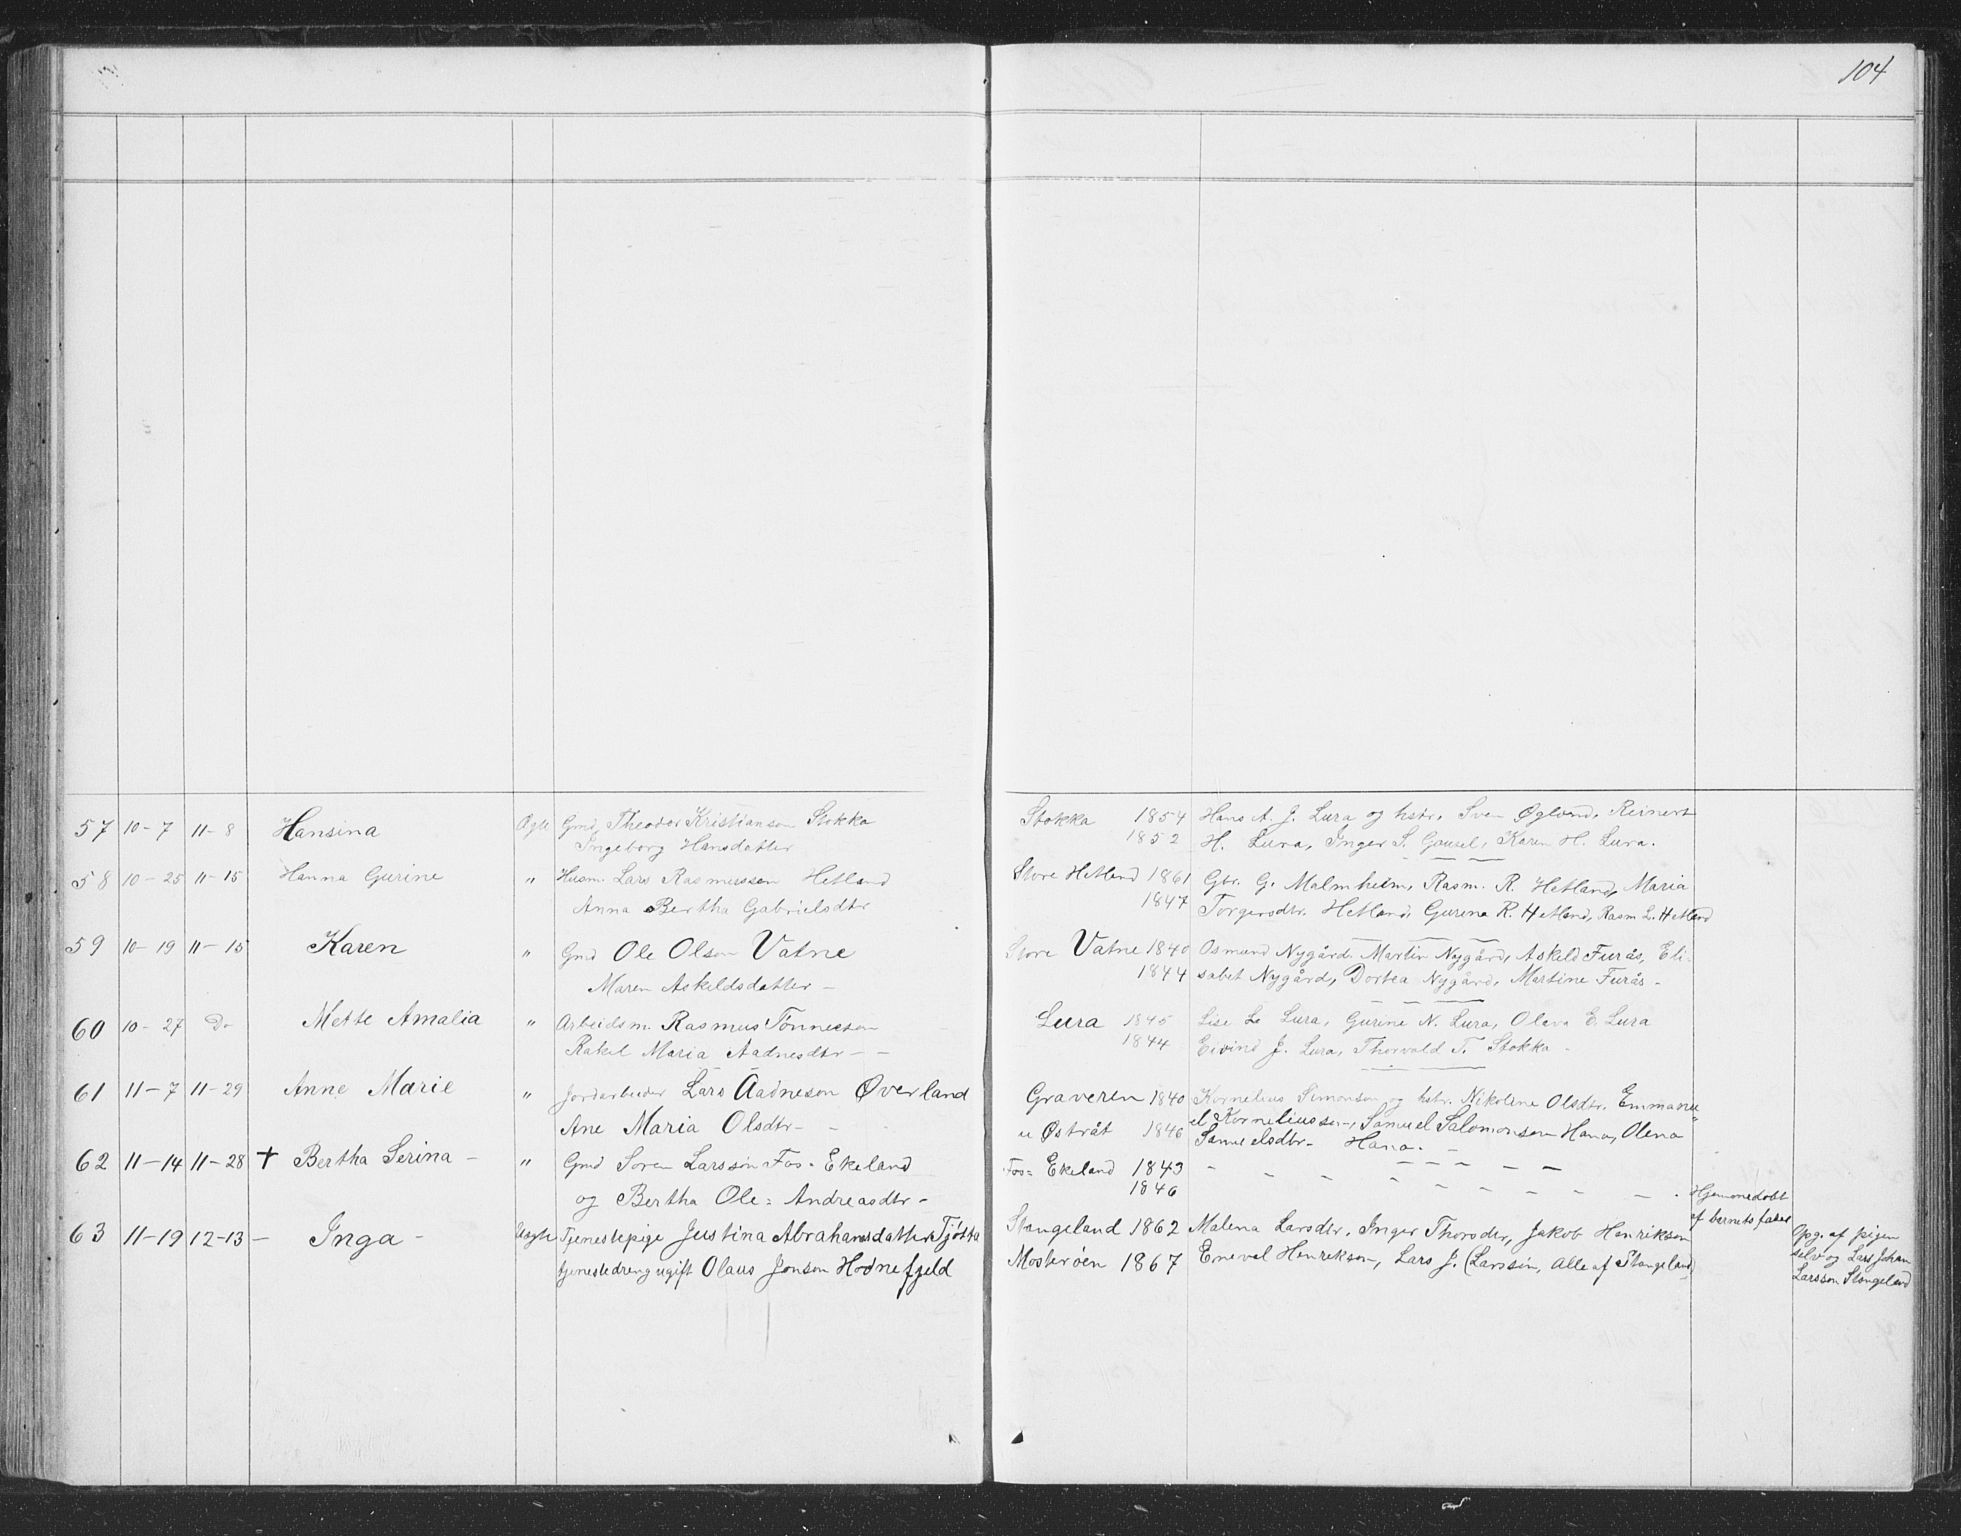 104
57 10-7 11-8 Hansina Ægte Gmd. Theodor Kristianson Stokka Stokka 1854 Hans A. J. Lura og hstr. Sven Øglend. Reinert
Ingeborg Hansdatter 1852 H. Lura, Inger S. Gausel, Karen H. Lura.
58 10-25 11-15 Hanna Gurine " Husm. Lars Rasmussen Hetland Store Hetland 1861 Gbr. G. Malmheim, Rasm. R. Hetland, Maria
Anna Bertha Gabrielsdtr 1847 Torgersdtr. Hetland, Gurina R. Hetland, Rasm L. Hetland
59 10-19 11-15 Karen " Gmd Ole Olson Vatne Store Vatne 1840 Osmund Nygård. Martin Nygård, Askild Furås, Eli-
Maren Askildsdatter - 1844 sabet Nygård, Dortea Nygård, Martine Furås -
60 10-27 Do Mette Amalia " Arbeidsm. Rasmus Tønneson Lura 1845 Lise L. Lura, Gurine N. Lura, Oleva E. Lura
Rakel Maria Aadnesdtr - - 1844 Eivind J. Lura, Thorvald T. Stokka -
61 11-7 11-29 Anne Marie " Jordarbeider Lars Aadneson Øverland Graveren 1840 Kornelius Simonson og hstr. Nikoline Olsdtr. Emmanu
Ane Maria Olsdtr - - u Østråt 1846 el Korneliusson, Samuel Salomonsen Hana, Olena
Samuelsdtr. Hana. -
62 11-14 11-28 + Bertha Serina - " Gmd Soren Larsson Fos-Ekeland Fos-Ekeland 1843 - - - - - -
og Bertha Ole-Andreasdtr - 1846 - - - - - - Hjemmedøbt
af barnets fader
63 11-19 12-13 - Inga - Uægte Tjenestepige Justina Abrahamsdatter Tjøtta Stangeland 1862 Malena Larsdtr. Inger Thorsdtr, Jakob Henrikson
tjenestedreng ugift Olaus Jonson Hodnefjeld Mosterøen 1867 Eneval Henrikson, Lars J. (Larsson, Alle af Stangeland)
Opg. af pigen
selv og Lars Johan
Larsson Stangeland